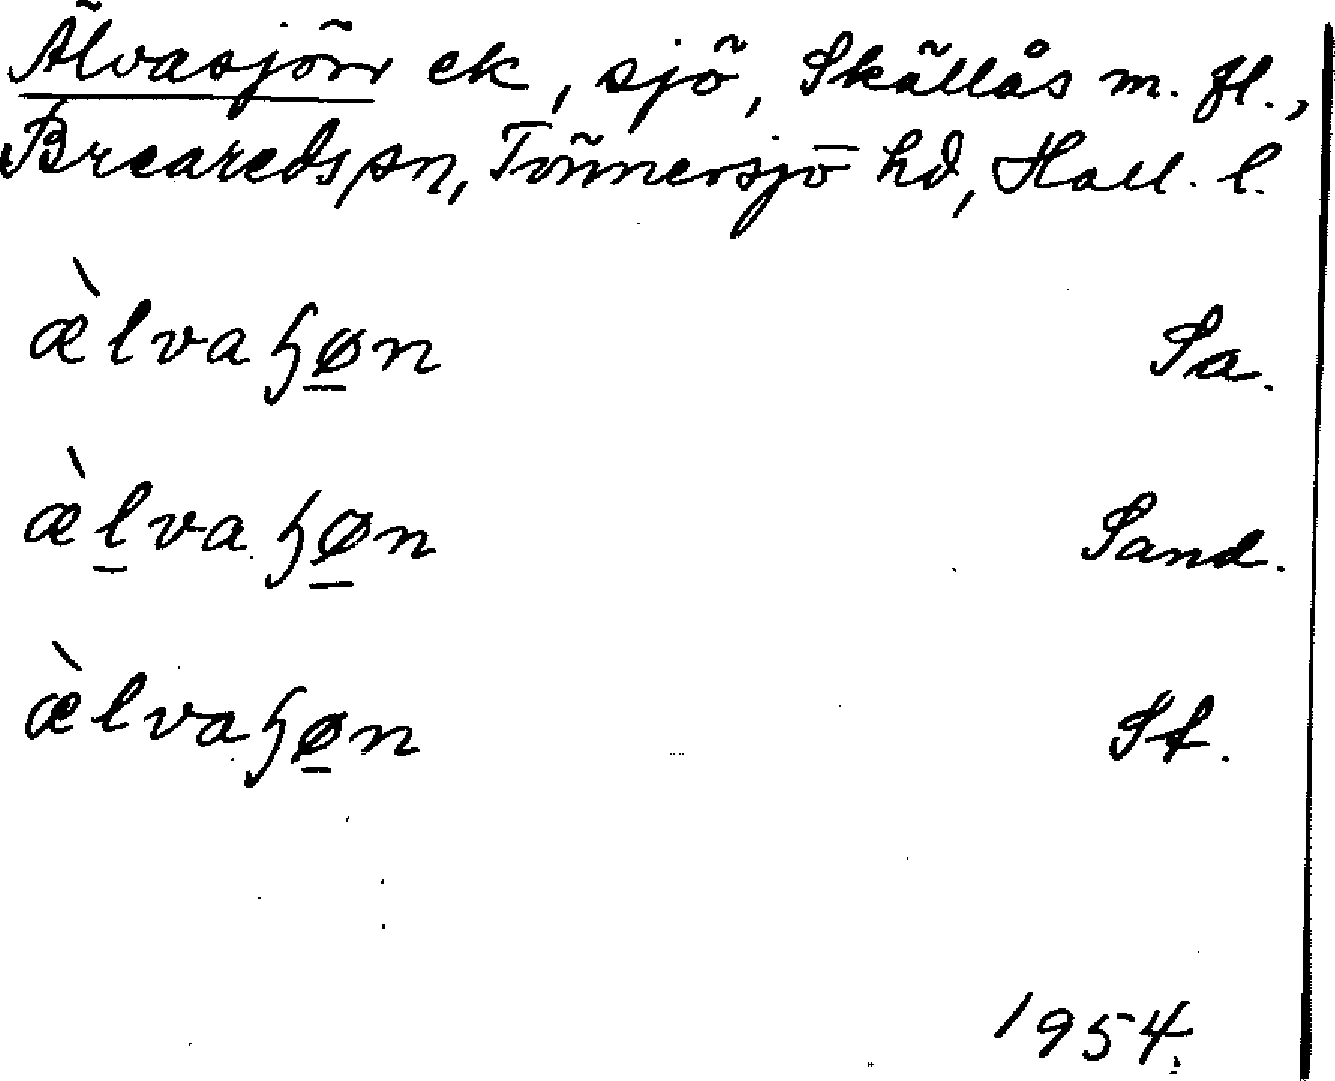 Älvasjön ek, sjö, Skällås m. fl.,
Breareds sn, Tönnersjö hd, Hall. l.
æ̀lvaɧø̱n Sa.
æ̀ḻvaɧø̱n Sand.
æ̀lvaɧø̱n St.
1954.